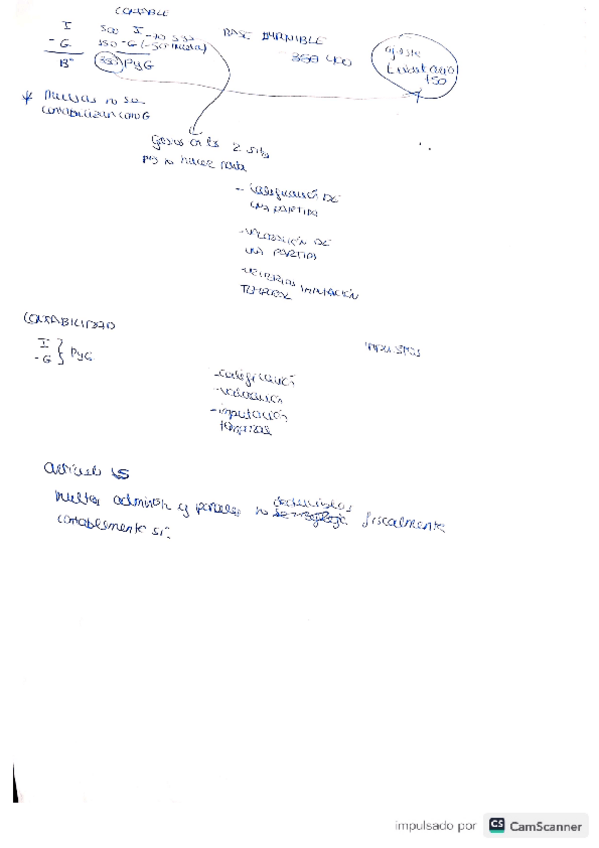 CONTABLE
I 500 I
- G 150 - G
Bº 350 PyG
BASE IMPONIBLE
350 400
ajuste
+50
* Multas no se
contabilizan como G
Gastos en los 2 sitios
no hacer nada
- Calificación DE
UNA PARTIDA
- VALORACIÓN DE
UNA PARTIDA
IMPUTACIÓN
TEMPORAL
CONTABILIDAD
I
- G } PyG
IMPUESTOS
- calificación
- valoración
- imputación
temporal
Artículo 15
multas admin y penales no deducibles fiscalmente
contablemente sí.
impulsado por CS CamScanner